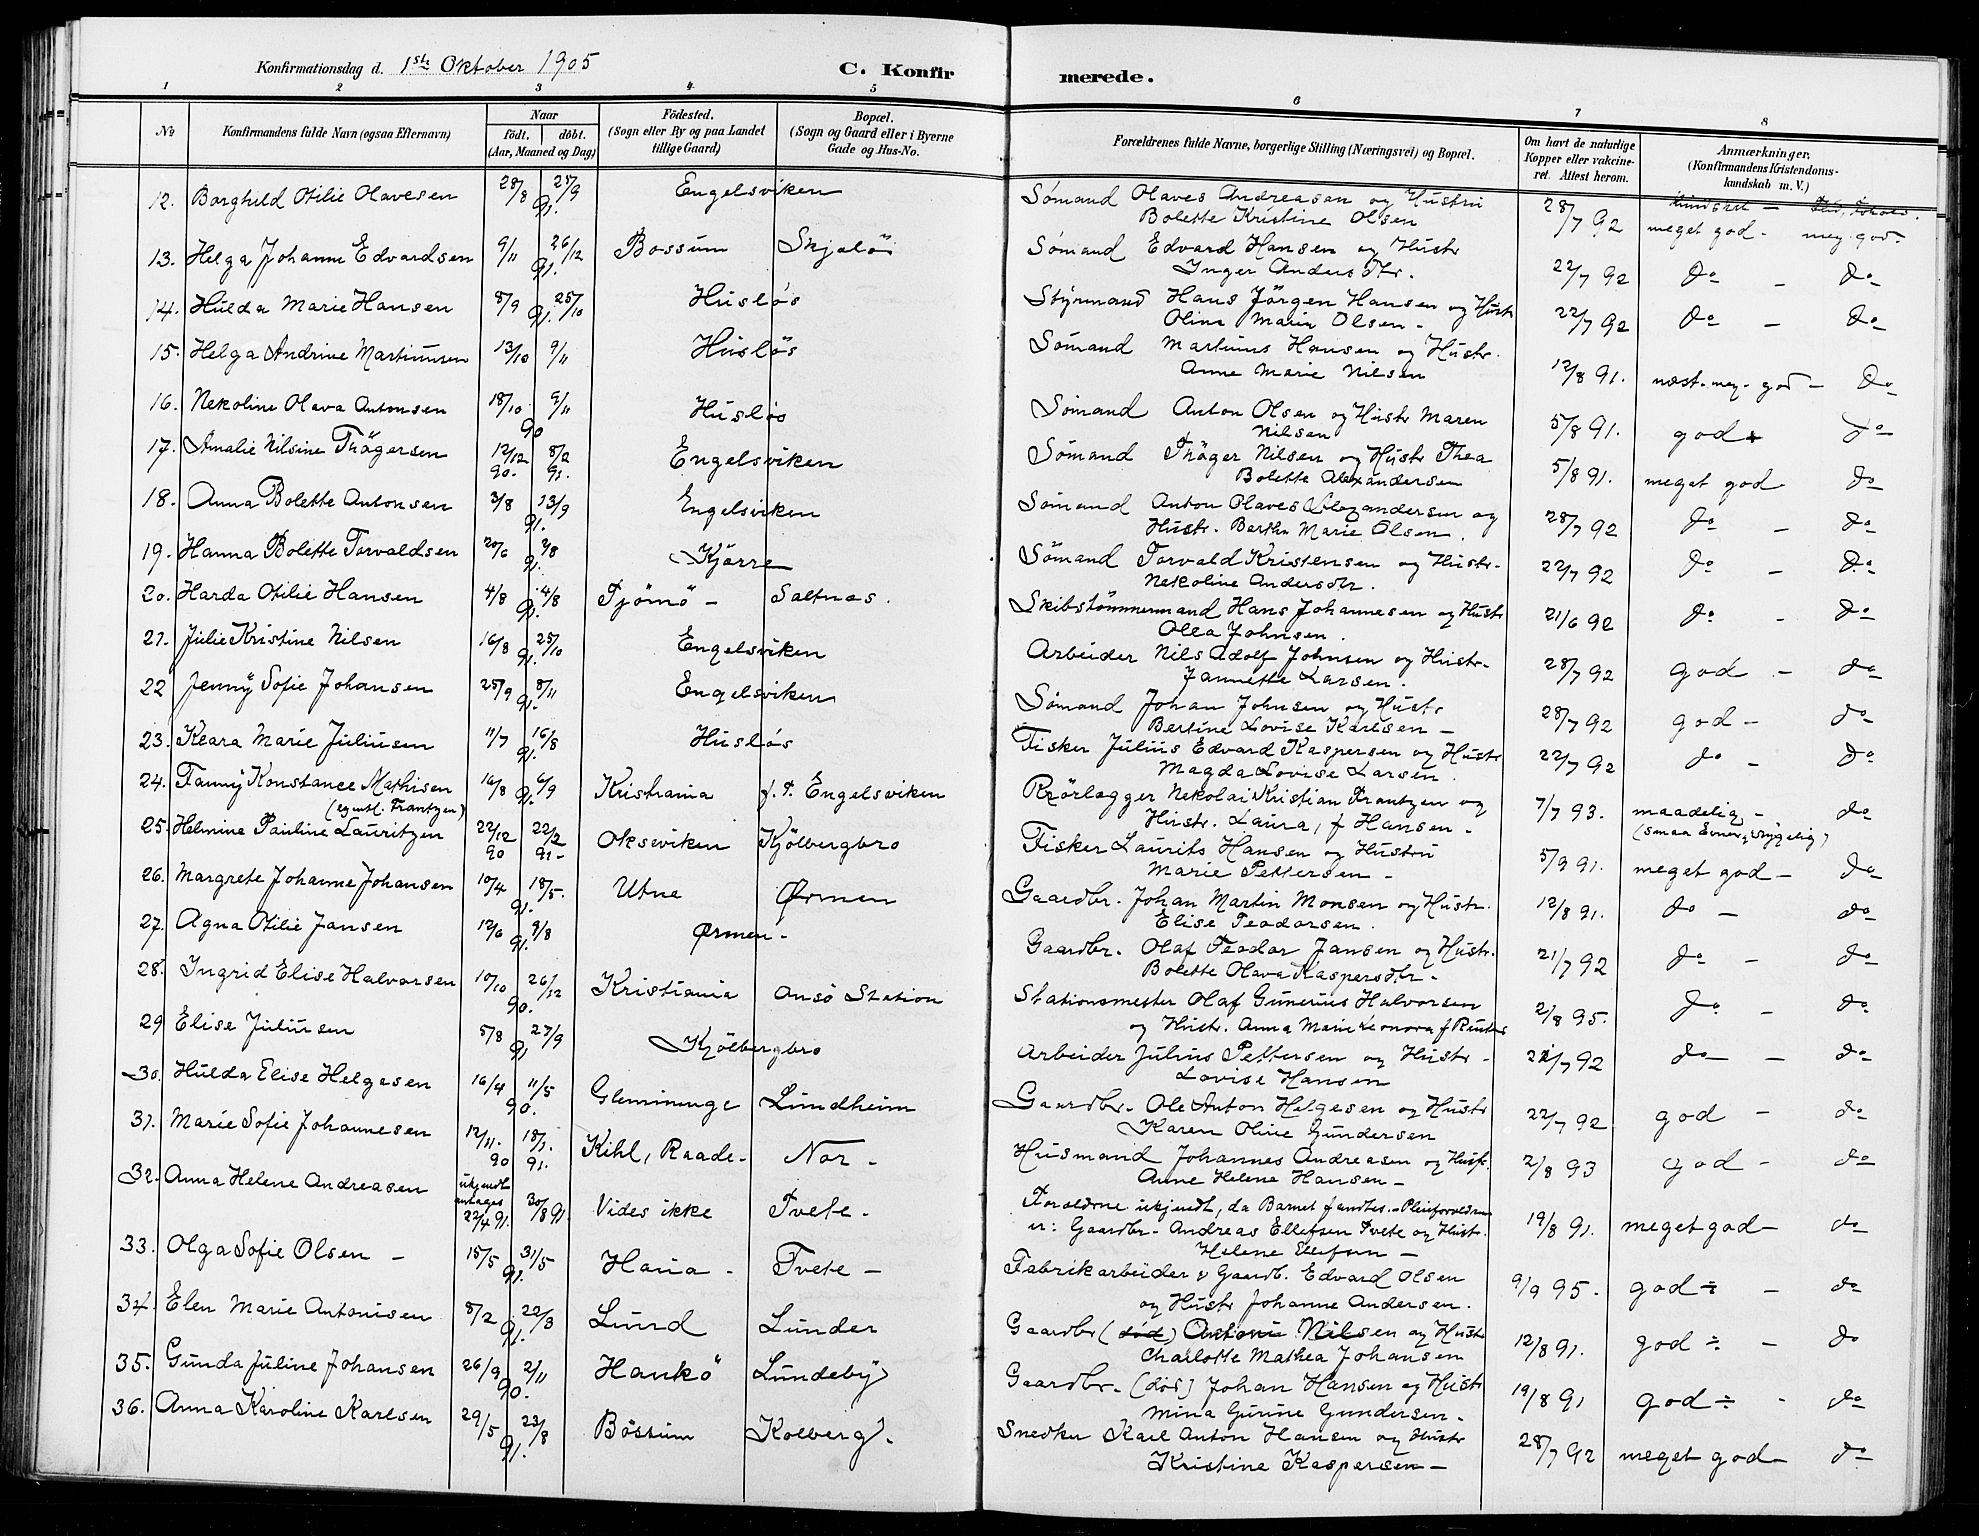 Konfirmationsdag d. 1ste Oktober 1905 C. Konfirmerede.
1 2 3 4. 5 6 7 8
No Konfirmandens fulde Navn (ogsaa Efternavn) Naar födt. döbt. (Aar, Maaned og Dag) Födested. (Sogn eller By og paa Landet tillige Gaard) Bopæl. (Sogn og Gaard eller i Byerne Gade og Hus-No. Forældrenes fulde Navne, borgerlige Stilling (Næringsvei) og Bopæl. Om havt de naturlige Kopper eller vakcineret. Attest herom. Anmærkninger. (Konfirmandens Kristendomskundskab m. V.)
Kundskab — Flid, Forhold.
12. Borghild Otilie Olavesen 28/8 27/9 91. Engelsviken Sømand Olaves Andreasen og Hustru 28/7 92 meget god - meg. god.
Bolette Kristine Olsen
13. Helga Johanne Edvardsen 9/11 26/12 91. Bossum Skjælö Sømand Edvard Hansen og Hustr 22/7 92 do - do
Inger Andersdtr.
14. Hulda Marie Hansen 8/9 25/10 91. Husløs Styrmand Hans Jörgen Hansen og Hustr 22/7 92 do - do
Oline Marie Olsen -
15. Helga Andrine Martinusen 13/10 9/11 Husløs Sømand Martinus Hansen og Hustr. 12/8 91. næst. meg. god - do
Anne Marie Nilsen
16. Nekoline Olava Antonsen 18/10 9/11 90 Husløs Sømand Anton Olsen og Hustr Maren 5/8 91. god do
Nilsen
17. Amalie Nilsine Thögersen 12/12 90. 8/2 91. Engelsviken Sømand Thöger Nilsen og Hustr Thea 5/8 91. meget god do
Bolette Alexandersen
18. Anna Bolette Antonsen 3/8 13/9 91. Engelsviken Sømand Anton Olaves Alexandersen og 28/7 92 do - do
Hustr. Berthe Marie Olsen.
19. Hanna Bolette Torvaldsen 20/6 2/8 91. Kjærre Sömand Torvald Kristensen og Hustr. 22/7 92 do - do
Nekoline Andersdtr.
20. Harda Otilie Hansen 4/8 4/8 91. Tjömö - Saltnæs. Skibstømmermand Hans Johannesen og Hustr 21/6 92 do - do
Olea Johnsen.
21. Julie Kristine Nilsen 16/8 25/10 91. Engelsviken Arbeider Nils Adolf Johnsen og Hustr. 28/7 92 god - do
Jannette Larsen.
22 Jenny Sofie Johansen 25/9 8/11 91. Engelsviken Sømand Johan Johnsen og Hustr 28/7 92 god - do
Bertine Lovise Karlsen -
23. Klara Marie Juliusen 11/7 16/8 91. Husløs Fisker Julius Edvard Kaspersen og Hustr 22/7 92 do - do
Magda Lovise Larsen
24. Fanny Konstance Mathisen 16/8 6/9 91. Kristiania f. t. Engelsviken Rørlægger Nekolai Kristian Frantzen og 7/7 93. maadelig - do
(egentl. Frantzen) Hustr. Laura, f Hansen - (smaa Evner, sygelig)
25. Helmine Pauline Lauritzen 22/12 90 22/2 91. Okseviken Kjölbergbro Fisker Laurits Hansen og Hustru 5/9 91. meget god - do
Marie Pettersen -
26. Margrete Johanne Johansen 10/4 18/5. 91. Utne Ørmen Gaardbr. Johan Martin Monsen og Hustr. 12/8 91. do - do
Elise Teodorsen.
27. Agna Otilie Jansen 12/6 9/8 91. Ørmen - Gaardbr. Olaf Teodor Jansen og Hustr. 21/7 92 do - do
Bolette Olava Kaspersdtr.
28. Ingrid Elise Halvorsen 10/10 26/12 90. Kristiania Onsö Station Stationsmester Olaf Gunerius Halvorsen 2/8 95. do - do
og Hustr. Anna Marie Leonora f
29 Elise Juliusen 5/8 27/9 91 Kjölbergbro Arbeider Julius Pettersen og Hustr - 22/7 92 do - do
Lovise Hansen
30. Hulda Elise Helgesen 16/4 11/5 90. Glemminge Lundheim Gaardbr. Ole Anton Helgesen og Hustr 22/7 92 god - do
Karen Oline Gundersen
31. Marie Sofie Johannesen 12/11. 90 18/1. 91. Kihl, Raade - Nor - Husmand Johannes Andreasen og Hustr. 2/8 93 god - do
Anne Helene Hansen -
32. Anna Helene Andreasen ukjendt antages 22/4 91. 30/8 91. Vides ikke Tvete - Forældrene ukjendt, da Barnet fandtes. - Pleieforældrene 19/8 91. meget god - do
er: Gaardbr. Andreas Ellefsen Tvete og Hustr.
Helene Ellefsen -
33. Olga Sofie Olsen - 15/5 31/5 91. Haua - Tvete - Fabrikarbeider & Gaardb. Edvard Olsen 9/9 95. god ÷ - do
og Hustr Johanne Andersen.
34. Elen Marie Antonisen 8/2 22/3 91. Lund Lunder Gaardbr (død) Antoni Nilsen og Hustr 12/8 91. god ÷ - do
Charlotte Mathea Johansen
35. Gunda Juline Johansen 26/9 2/11 90. Hankö Lundeby Gaardbr. (död) Johan Hansen og Hustr 19/8 91 god ÷ - do
Mina Gurine Gundersen.
36. Anna Karoline Karlsen 29/5 23/8 91. Bössum Kolberg. Snedker Karl Anton Hansen og Hustr 28/7 92 meget god - do
Kristine Kaspersen -